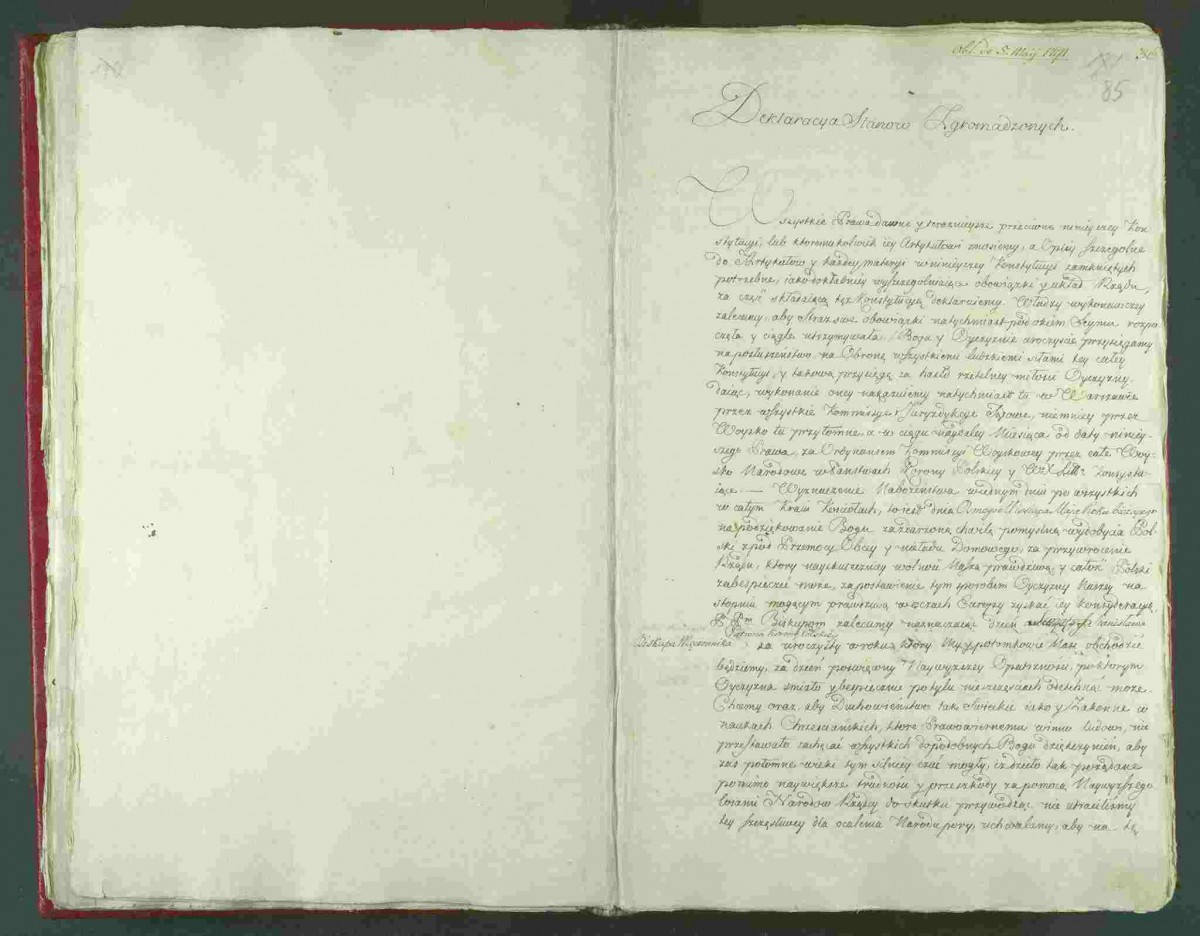 Obl. de 5. Maij 1791.
85
Deklaracya Stanow Zgromadzonych.
Wszystkie Prawa dawne y teraznieysze przeciwne ninieyszey Kon
stytucyi, lub ktoremukolwiek iey Artykułowi znosiemy, a Opisy szczegolne
do Artykułow y każdey materyi w ninieyszey Konstytucyi zamkniętych
potrzebne, iako dokładniey wyszczegolniaiące obowiązki y układ Rządu,
za część składaiącą tęż Konstytucyą deklaruiemy. Władzy wykonawczey
zalecamy, aby Straż swe obowiązki natychmiast pod okiem Seymu rozpo
częła y ciągle utrzymywała. Bogu y Oyczyznie uroczyście przysięgamy
na posłuszeństwo na Obronę wszystkiemi ludzkiemi siłami tey całey
Konstytucyi, y takową przysięgę za hasło rzetelney miłości Oyczyzny
daiąc, wykonanie oney nakazuiemy natychmiast tu w Warszawie
przez wszystkie Kommissye y Juryzdykcye Sądowe, niemniey przez
Woysko tu przytomne, a w ciągu naydaley Miesiąca od daty niniey-
szego Prawa, za Ordynansem Kommissyi Woyskowey przez całe Woy-
sko Narodowe w Państwach Korony Polskiey y W. X. Litt: konsystu-
iące. — Wyznaczenie Nabożeństwa w iednym dniu po wszystkich
w całym Kraiu Kościołach, to iest dnia Maja Roku bieżącego
na podziękowanie Bogu za zdarzoną chwilę pomyślną wydobycia Pol-
ski z pod Przemocy Obcey y nieładu Domowego, za przywrocenie
Rządu, ktory nayskuteczniey wolność Naszą prawdziwą y całość Polski
zabespieczeć może, za postawienie tym sposobem Oyczyzny Naszey na
stopniu mogącym prawdziwą w oczach Europy zyskać iey konsyderacyą,
Biskupom zalecamy naznaczaiąc dzień Stanisława
Biskupa Męczennika Patrona
za uroczysty w roku, ktory My y potomkowie Nasi obchodzić
będziemy, za dzień poswięcony Naywyższey Opatrzności, po ktorym
Oyczyzna smiało y bespiecznie po tylu nieszczęściach odetchnąć może.
Chcemy oraz, aby Duchowieństwo tak Swieckie iako y Zakonne w
naukach Chrześciańskich, ktore Prawowiernemu winno ludowi, nie
przestawało zachęcać wszystkich do podobnych Bogu dziękczynień, aby
zaś potomne wieki tym silniey czuć mogły, iż dzieło tak pożądane
pomimo naywiększe trudności y przeszkody za pomocą Naywyższego
losami Narodow Rządcy do skutku przywodząc nie utraciliśmy
tey szczęśliwey dla ocalenia Narodu pory, uchwalamy, aby na tę